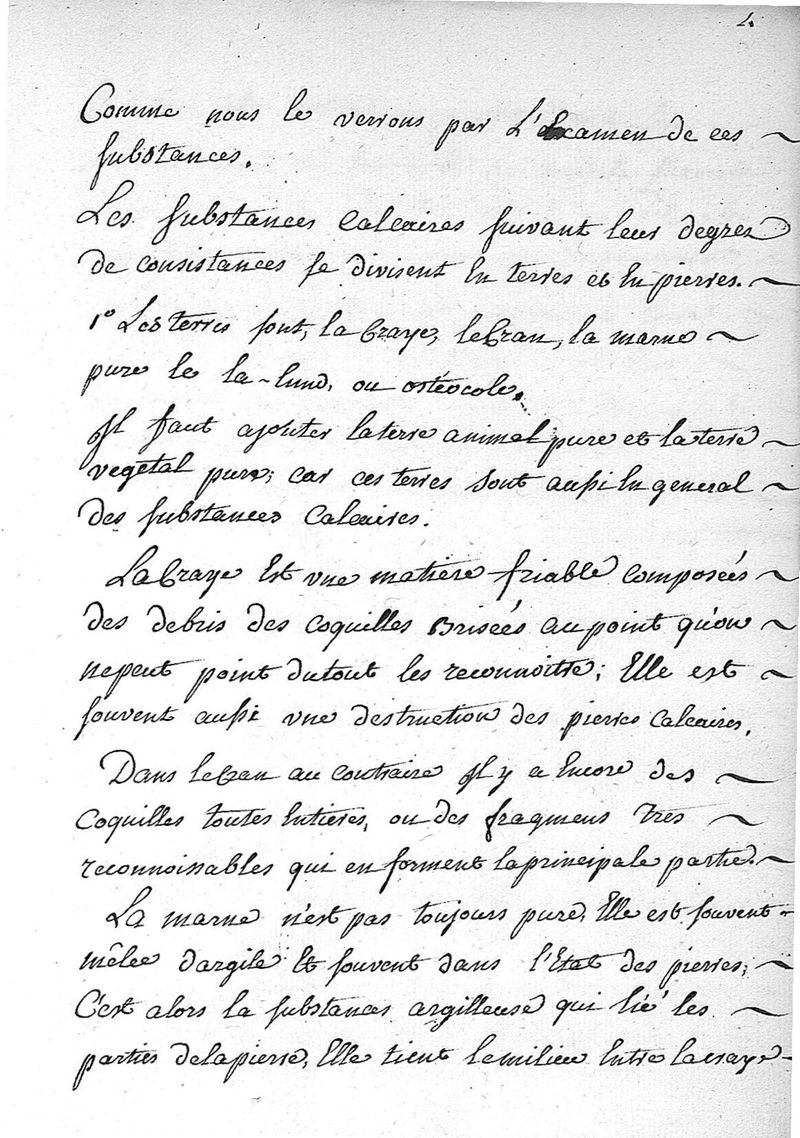 4
Comme nous le verrons par L'Examen de ces
substances.
Les substances calcaires suivant leur degrez
de consistances se divisent En terres et En pierres.
1° Les terres sont, la Craye, le Cran, la marne
pure le la-lund, ou ostéocole.
Il faut ajouter la terre animal pure et la terre
vegétal pure; car ces terres sont aussi En general
des substances Calcaires.
La Craye Est vne matiére friable composeés
des debris des coquilles Briseés au point qu'on
ne peut point du tout les reconnoitre; Elle est
souvent aussi vne destruction des pierres Calcaires.
Dans le Cran au contraire Il y a Encore des
Coquilles toutes Entieres, ou des fragmens tres
reconnoissables qui en forment la principale partie.
La marne n'est pas toujours pure, Elle est souvent
mêlee d'argile Et souvent dans l'Etat des pierres;
C'est alors la substances argilleuse qui lié les
parties de la pierre, Elle tient le milieu Entre la craye